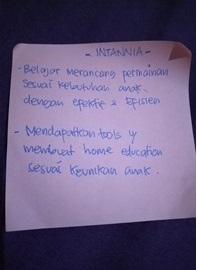 - INTANNIA -
- Belajar merancang permainan
sesuai kebutuhan anak.
dengan efektif & Efisien
- Mendapatkan tools y
membuat home education
sesuai keunikan anak.